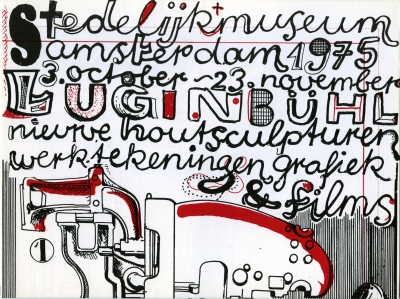 Stedelijkmuseum
amsterdam 1975
3. october - 23. november
LUGINBÜHL
nieuwe houtsculpturen
werktekeningen grafiek
& films
1